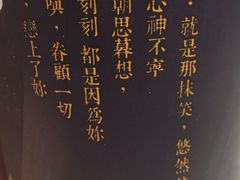 ・就是那抹笑，悠然
心神不寧
朝思暮想，
刻刻 都是因為妳
嗔，眷顧一切
戀上了妳